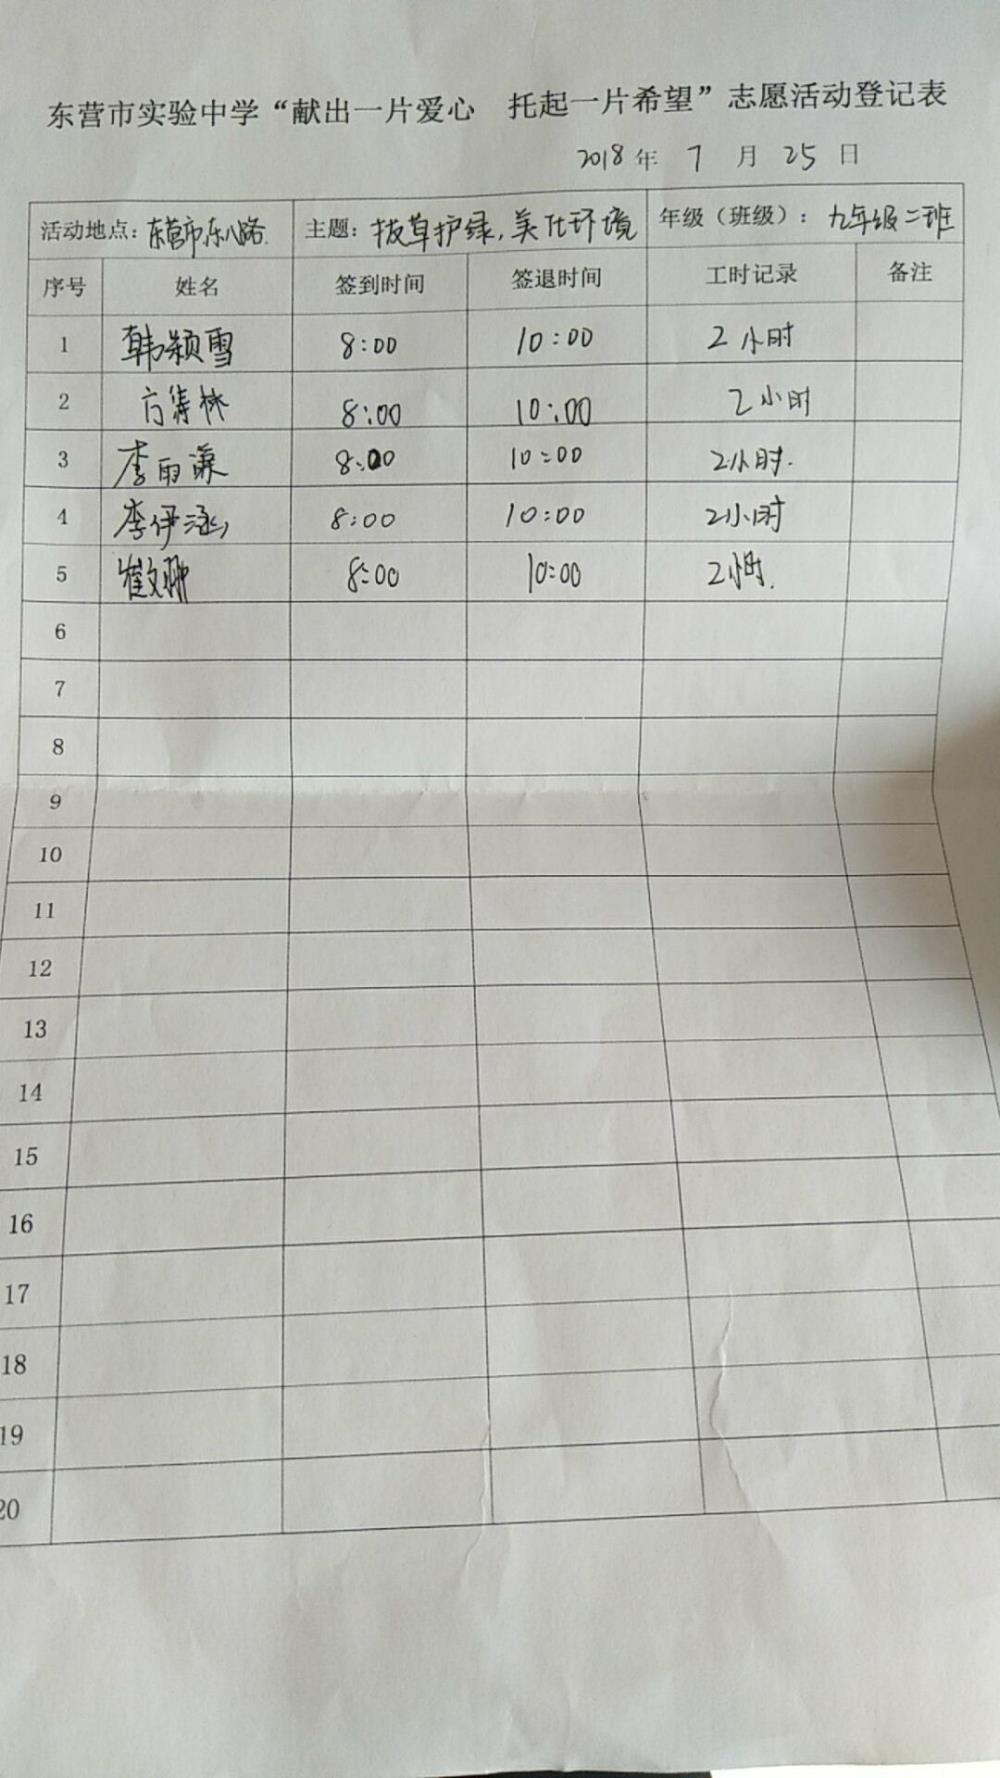 东营市实验中学“献出一片爱心　托起一片希望”志愿活动登记表
2018 年 7 月 25 日
活动地点：东营市东八路 主题：拔草护绿，美化环境 年级（班级）：九年级二班
序号 姓名 签到时间 签退时间 工时记录 备注
1 韩颖雪 8:00 10:00 2小时
2 8:00 10:00 2小时
3 李雨濂 8:00 10:00 2小时.
4 李伊涵 8:00 10:00 2小时
5 8:00 10:00 2小时.
6
7
8
9
10
11
12
13
14
15
16
17
18
19
20